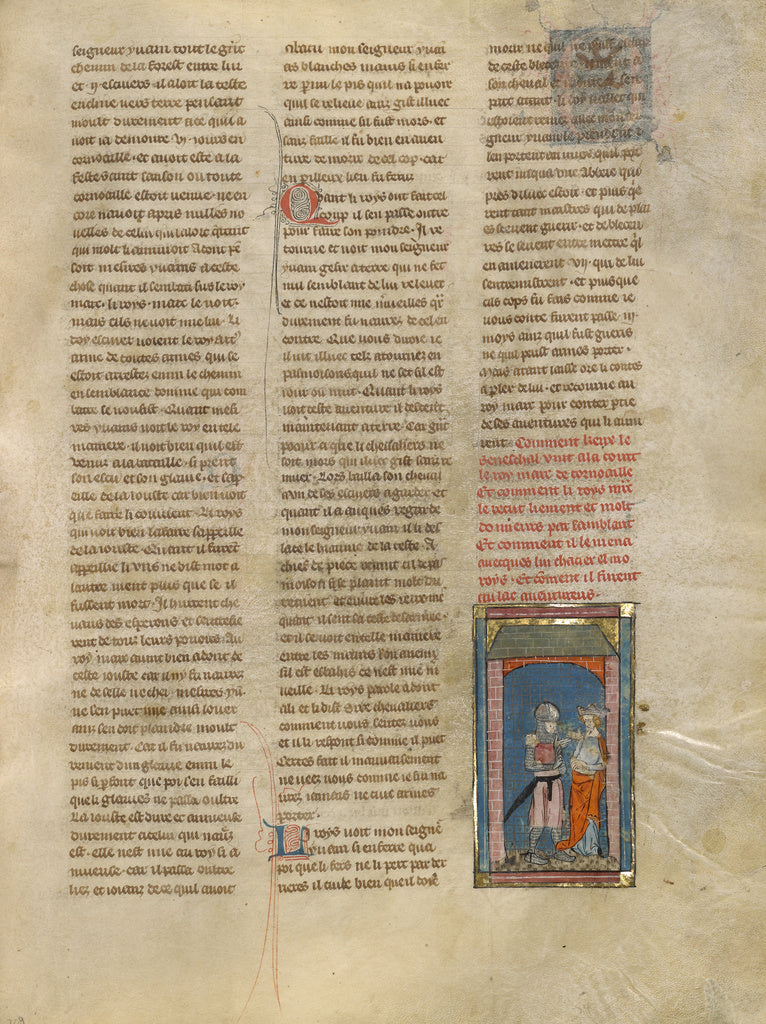 seigneur yuain tout le grāt
chemin de la forest entre lui
et .ij. escuiers il aloit la teste
encline uers terre pensant
moult durement
noit ia demoure .vj. iours en
cornoaille. et auoit este a la
feste saint sanson ou toute
cornoaille estoit uenue. ne en
core nauoit apris nulles no
uelles de celui qui aloit querāt
qui molt lanuioit Adont pē
soit mesires yuains a ceste
chose quant il sembati sus le roy
marc. li roys marc le uoit.
mais cils ne uoit mie lui. Li
doy escuier uoient le roy art
arme de toutes armes qui se
estoit arrestez enmi le chemin
en semblance domme qui com
batre se uousist. Quant mesi
res yuains uoit le roy en tele
maniere. il uoit bien quil est
uenus a la bataille. si prent
son escu et son glaiue. et sap
peille de la iouste car bien uoit
que faire li conuient. Li roys
qui uoit bien lafaire sappeille
de la iouste. Quant il furēt
appeillie li uns ne dist mot a
lautre nient plus que se il
fussent mort. Il hurtent che
uaus des esperons et sentrefie
rent de tous leurs pouoirs. Au
roy marc auint bien adont de
celle iouste car il ny fu naurez
ne de selle ne chei. mesires yu
ne sen puet mie ainsi louer
ains sen doit plaindre moult
durement. Car il fu naurez du
rement dun glaiue enmi le
pis si parfont que poi sen failli
que li glaiues ne passa oultre
La iouste est dure et anuieuse
durement a celui qui naurez
est. elle nest mie au roy si a
nuieuse. car il passa oultre
liez et ioianz de ce quil auoit
abatu mon seigneur yuai
as blanches mains si enfer
re parmi le pis quil na pouoir
quil se relieue ainz gist illuec
ainsi comme sil fust mors. et
sanz faille il fu bien en auen
ture de morir de cel cop. car
en perilleux lieu fu ferus
Quant li roys ont fait cel
coup il sen passe outre
pour faire son poindre. Il re
tourne et uoit mon seigneur
yuain gesir a terre qui ne fet
nul semblant de lui releuer
et ce nestoit mie merueilles q̄r
durement fu naurez de cel en
contre. Que vous diroie ie
il iut illuec telz atournez en
pasmoisons quil ne set sil est
iour ou nuit. Quant li roys
uoit ceste auenture il descent
maintenant a terre. Car grāt
paour a que li cheualiers ne
soit mors qui iluec gist sanz re
muer. Lors bailla son cheual
a un de ses escuiers a garder. et
quant il a auques regarde
monseigneur yuain il li des
lace le hiaume de la teste. A
chief de piece reuint cil de pa
moisons si se plaint molt du
rement. et euure les ieux. me
quant il sent sa teste desarmee
et il se uoit en telle maniere
entre les mains son anemi
sil est esbahis ce nest mie m
ueille. Li roys parole adont
a li et li dist Sire cheualiers
comment uous sentez uous
et il li respont si comme il puet
Certes fait il mauuaisement
ne ueez uous comme ie sui na
urez iamais ne cuit armes
porter.
Li roys uoit mon seigne
yuain si enferre qua
poi que li fers ne li pert par der
rieres il cuide bien que il doie
morir ne qil ne puist eschap
de ceste bleceure
son cheual et
part atant. li
estoient uenuz auec mon s
gneur yuain le prendent
len portent au mieus quil por
rent iusqua une abbeie qui
pres diluec estoit. et puis q̄e
rent tant maistres qui de plai
es seuent guerir. et de bleceu
res se seuent entremettre q̄l
en amenerent .vij. qui de lui
sentremistrent. et puis que
cils cops fu fais comme ie
uous conte furent passe .iij.
moys ainz quil fust gueris
ne quil peust armes porter.
Mais atant laisse ore li contes
a parler de lui. et retourne au
roy marc pour conter ptie
de ses auentures qui li auin
rent. Comment keux le
seneschal uint a la court
le roy marc de cornoaille
Et comment li roys marc
le recut liement et molt
donneurs par samblant
Et comment il le mena
auecques lui chacier el mo
roys. Et cōment il furent
au lac auentureus.